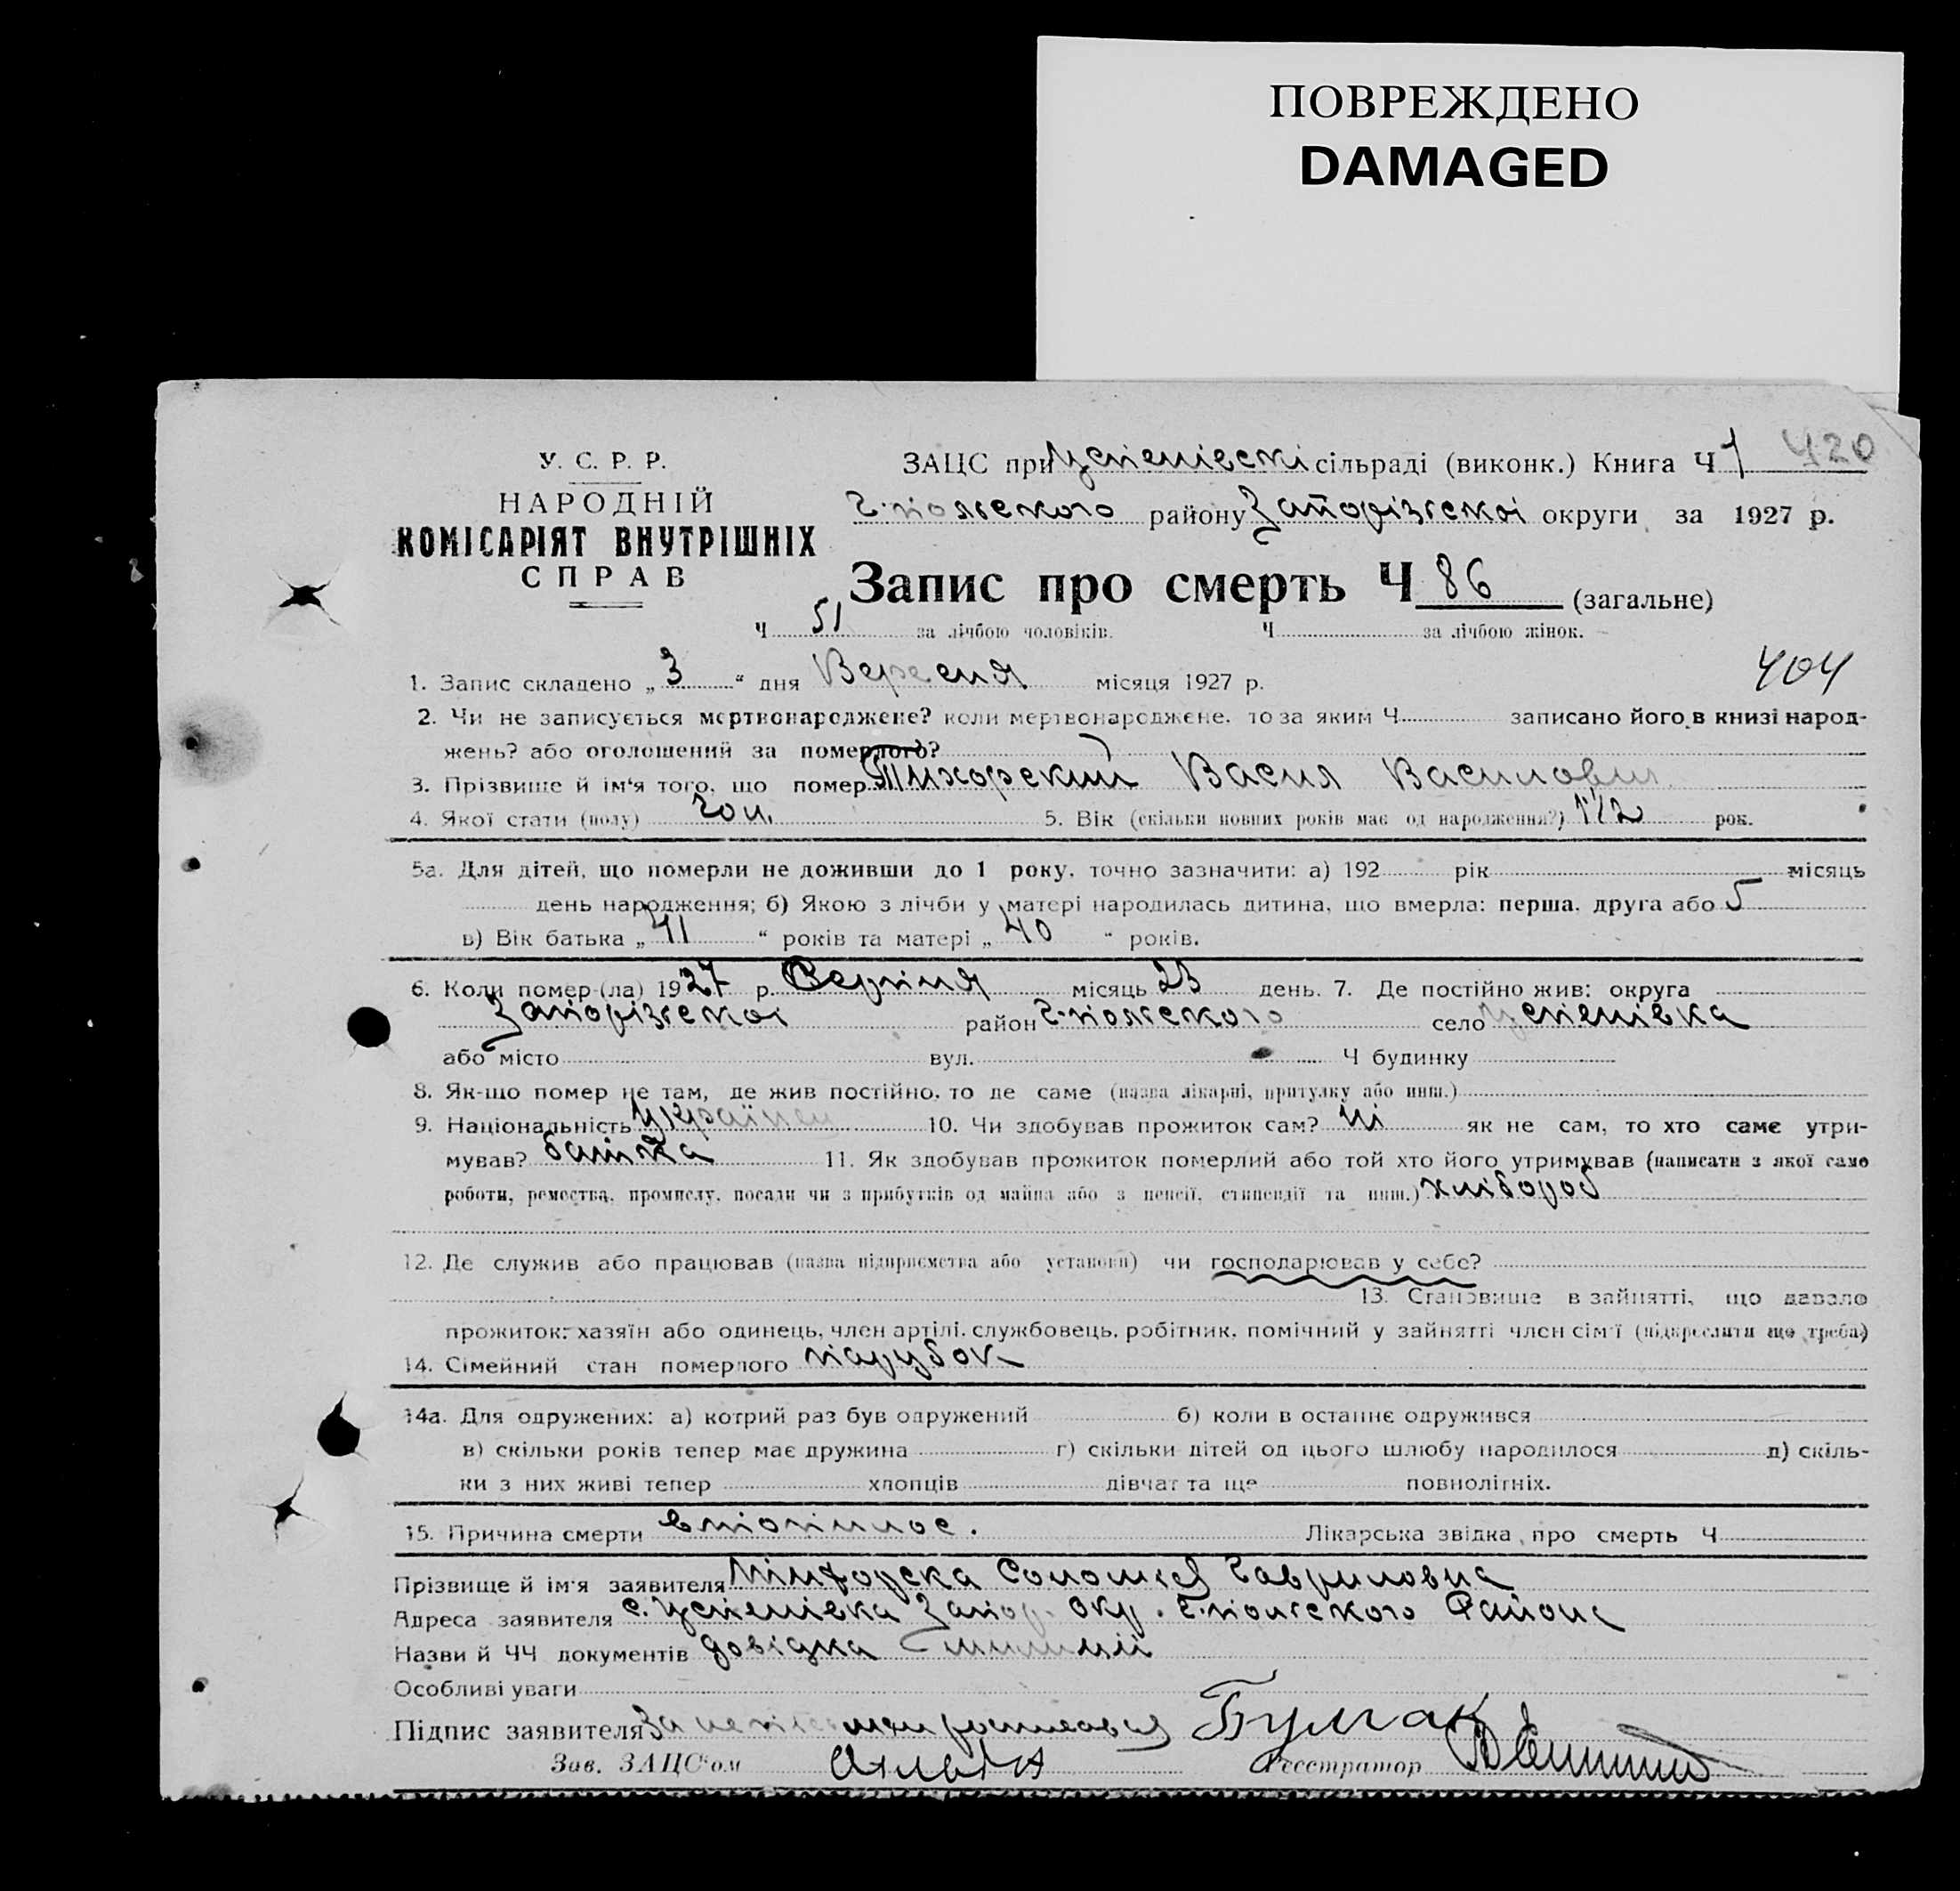 ПОВРЕЖДЕНО
DAMAGED
420
У. С. Р. Р.
НАРОДНІЙ
КОМІСАРІЯТ ВНУТРІШНІХ
СПРАВ
ЗАЦС при Успенівскі сільраді (виконк.) Книга Ч 1
Г-польского району Запорізської округи за 1927 р.
Запис про смерть Ч 86 (загальне)
Ч 51 за лічбою чоловіків. Ч за лічбою жінок.
404
1. Запис складено „ 3 “ дня Вересня місяця 1927 р.
2. Чи не записується мертвонароджене? коли мертвонароджене, то за яким Ч записано його в книзі народ-
жень? або оголошений за померлого?
3. Прізвище й ім'я того, що помер Тихорский Васил Василович
4. Якої стати (полу) чол. 5. Вік (скільки повних років має од народження?) 1 1/2 рок.
5а. Для дітей, що померли не доживши до 1 року, точно зазначити: а) 192 рік місяць
день народження; б) Якою з лічби у матері народилась дитина, що вмерла: перша, друга або 5
в) Вік батька „ 41 “ років та матері „ 40 “ років.
6. Коли помер (ла) 1927 р. місяць 23 день. 7. Де постійно жив: округа
Запорізської район Г-польского село Успенівка
або місто вул. Ч будинку
8. Як-що помер не там, де жив постійно, то де саме (назва лікарні, притулку або инш.)
9. Національність Українец 10. Чи здобував прожиток сам? ні як не сам, то хто саме утри-
мував? батько 11. Як здобував прожиток померлий або той хто його утримував (написати з якої саме
роботи, ремества, промислу, посади чи з прибутків од майна або з пенсії, стипендії та инш.) хлібороб
12. Де служив або працював (назва підприємства або установи) чи господарював у себе?
13. Становище в зайнятті, що давало
прожиток: хазяїн або одинець, член артілі, службовець, робітник, помічний у зайнятті член сім'ї (підкреслити що треба)
14. Сімейний стан померлого парубок
14а. Для одружених: а) котрий раз був одружений б) коли в останнє одружився
в) скільки років тепер має дружина г) скільки дітей од цього шлюбу народилося д) скіль-
ки з них живі тепер хлопців дівчат та ще повнолітніх.
15. Причина смерти втопилос. Лікарська звідка про смерть Ч
Прізвище й ім'я заявителя Тихорска Соломія Гавриловна
Адреса заявителя с. Успенівка Запор. окр. Г-польского Району
Назви й ЧЧ документів довідка міліції
Особливі уваги
Підпис заявителя За росписався Булгак
Зав. ЗАЦС'ом Реєстратор